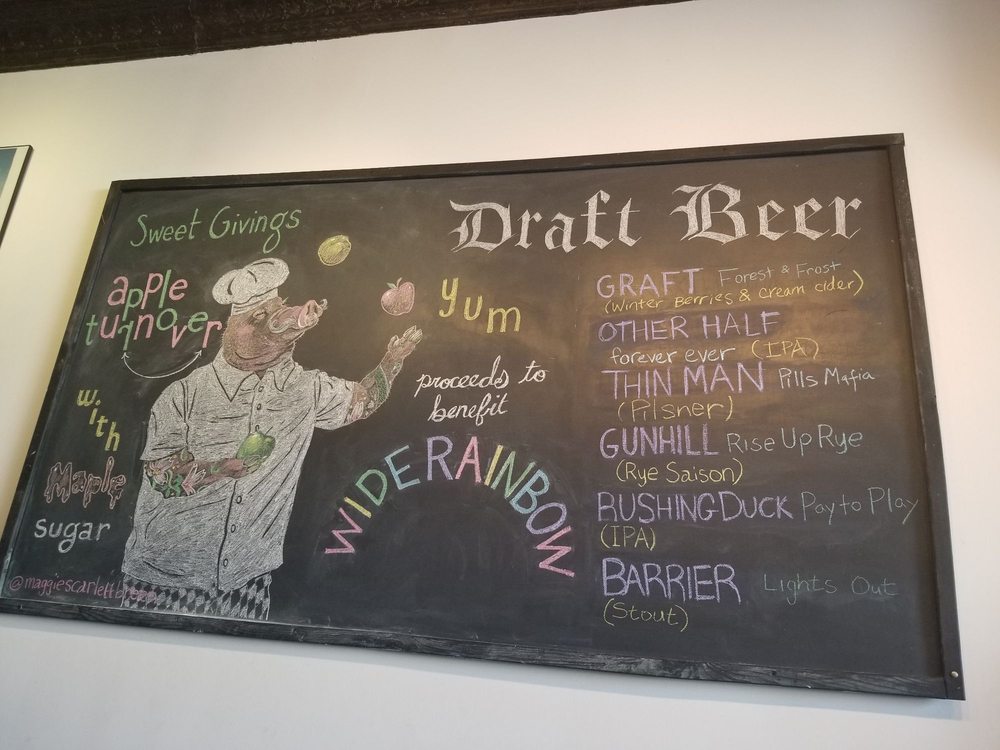 Sweet Givings
apple
turnover
with
Maple
sugar
yum
proceeds to
benefit
WIDERAINBOW
Draft Beer
GRAFT Forest & Frost
(Winter Berries & cream cider)
OTHER HALF
forever ever (IPA)
THIN MAN Pills Mafia
(Pilsner)
GUNHILL Rise Up Rye
(Rye Saison)
RUSHING DUCK Pay to Play
(IPA)
BARRIER Lights Out
(Stout)